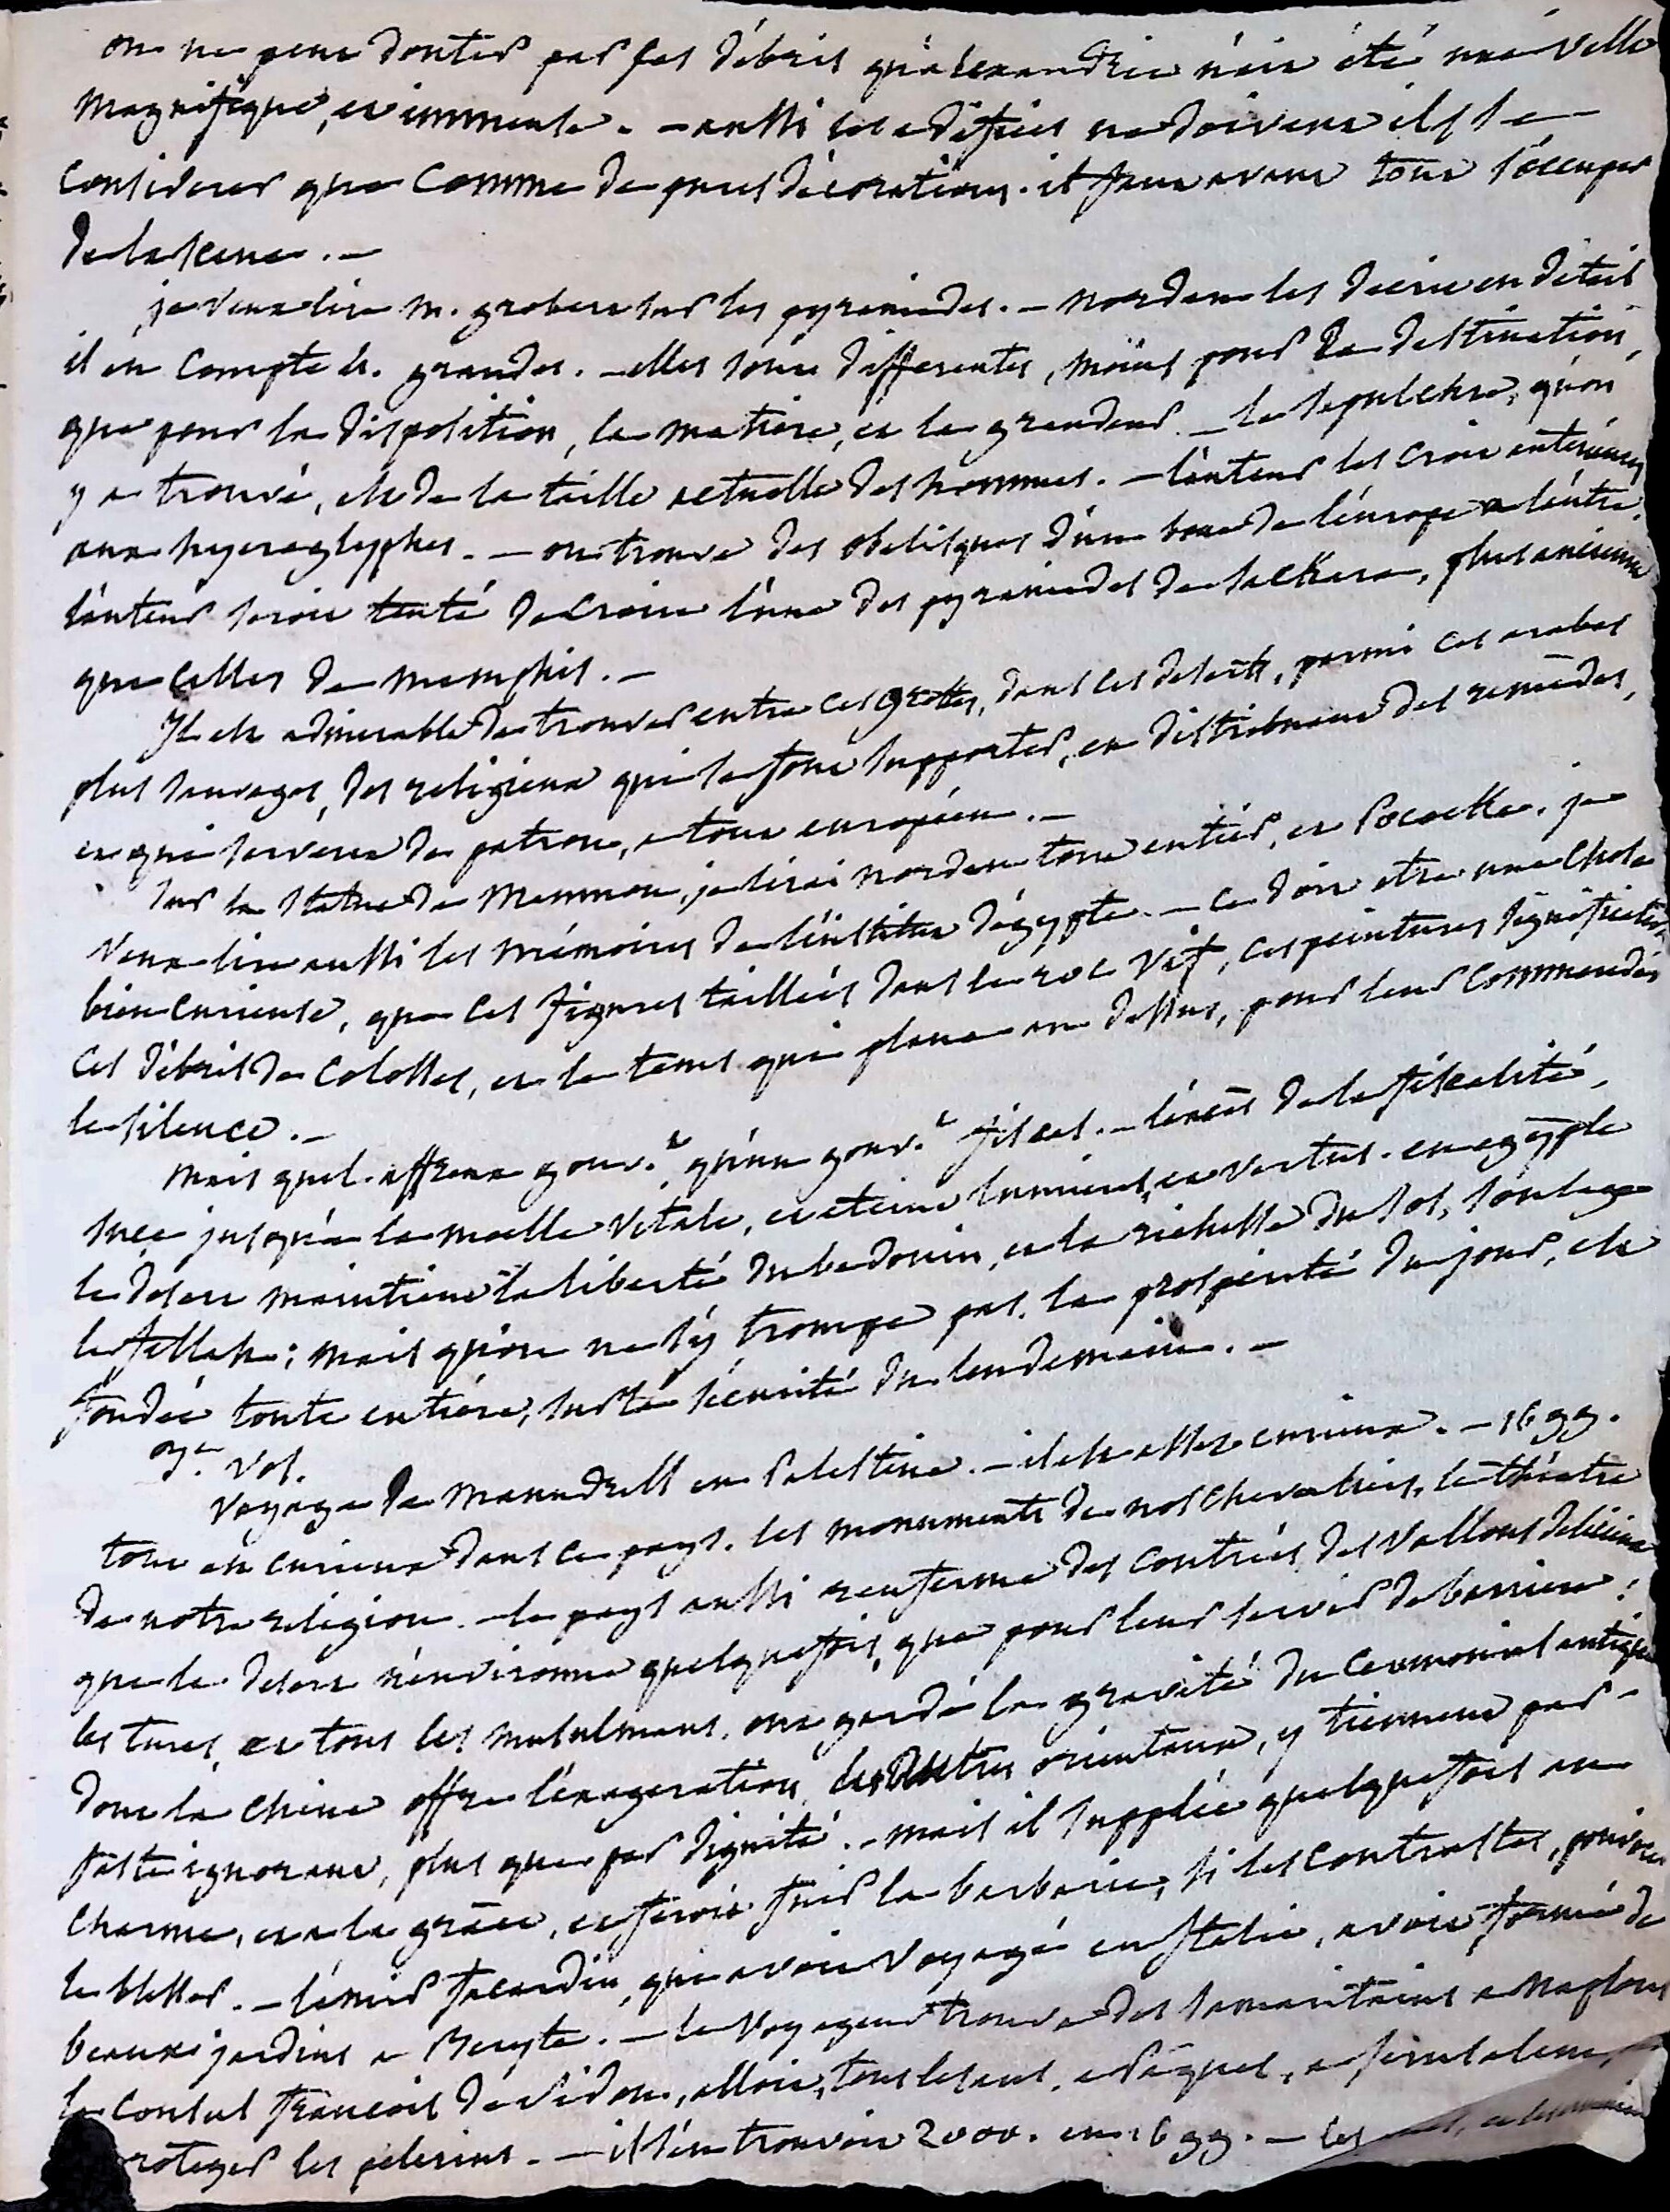 on ne peut douter par ses débris qu'alexandrie n'ait été une ville
magnifique, et immense. - aussi les édifices ne doivent ils se
considerer que comme de pures décorations. il faut avant tout s'occuper
de la scene. -
je veux lire m. grobert sur les pyramides. - norden les décrit en détail
il en compte 4. grandes. - elles sont differentes, moins pour la destination,
que pour la disposition, la matiere, et la grandeur. - le sepulchre, qu'on
y a trouvé, est de la taille actuelle des hommes. - l'auteur les croit antérieures
aux hyeroglyphes. - on trouve des obelisques d'un bout de l'europe a l'autre.
l'auteur seroit tenté de croire l'une des pyramides de sackara, plus ancienne
que celles de memphis. -
Il est admirable de trouver entre ces grottes, dans ces deserts, parmi ces arabes
plus sauvages, des religieux qui se font supporter, en distribuant des remèdes,
et qui servent de patrons, a tout européen. -
sur la statue de Memnon, je lirai norden tout entier, et Pococke. je
veux lire aussi les mémoires de l'institut d'égypte. - ce doit etre une chose
bien curieuse, que ces figures taillées dans le roc vif, ces peintures significatives
ces débris de colosses, et le tems qui plane au dessus, pour leur commander
le silence. -
mais quel affreux gouv.t qu'un gouv.t fiscal. - l'excès de la fiscalité,
suce jusqu'a la moelle vitale, et eteint lumieres, et vertus. en egypte
le desert maintient la liberté du bedouin, et la richesse du sol, soulage
le fellah; mais qu'on ne s'y trompe pas. la prosperité du jour, est
fondée toute entière, sur la sécurité du lendemain. -
3.e vol.
voyage de Maundrell en Palestine. - il est assez curieux. - 1699.
tout est curieux dans ce pays. les monuments de nos chevaliers, le théatre
de notre religion. - le pays aussi renferme des contrées, des vallons delicieux
que le desert n'environne quelquefois, que pour leur servir de barriere.
les turcs, et tous les musulmans, ont gardé la gravité du ceremonial antique
dont la chine offre l'exageration. les autres orientaux, y tiennent par
faste ignorant, plus que par dignité. - mais il supplée quelquefois au
charme, et a la grâce, et feroit fuir la barbarie, si les contrastes, pouvoient
le blesser. - l'émir facardin, qui avoit voyagé en Italie, avoit formé de
beaux jardins a Beryte. - le voyageur trouva des samaritains a naplous
le consul françois de sidon, alloit, tous les ans, a Pâques, a Jerusalem,
proteger les pelerins. - il s'en trouvoit 2000. en 1699. - les